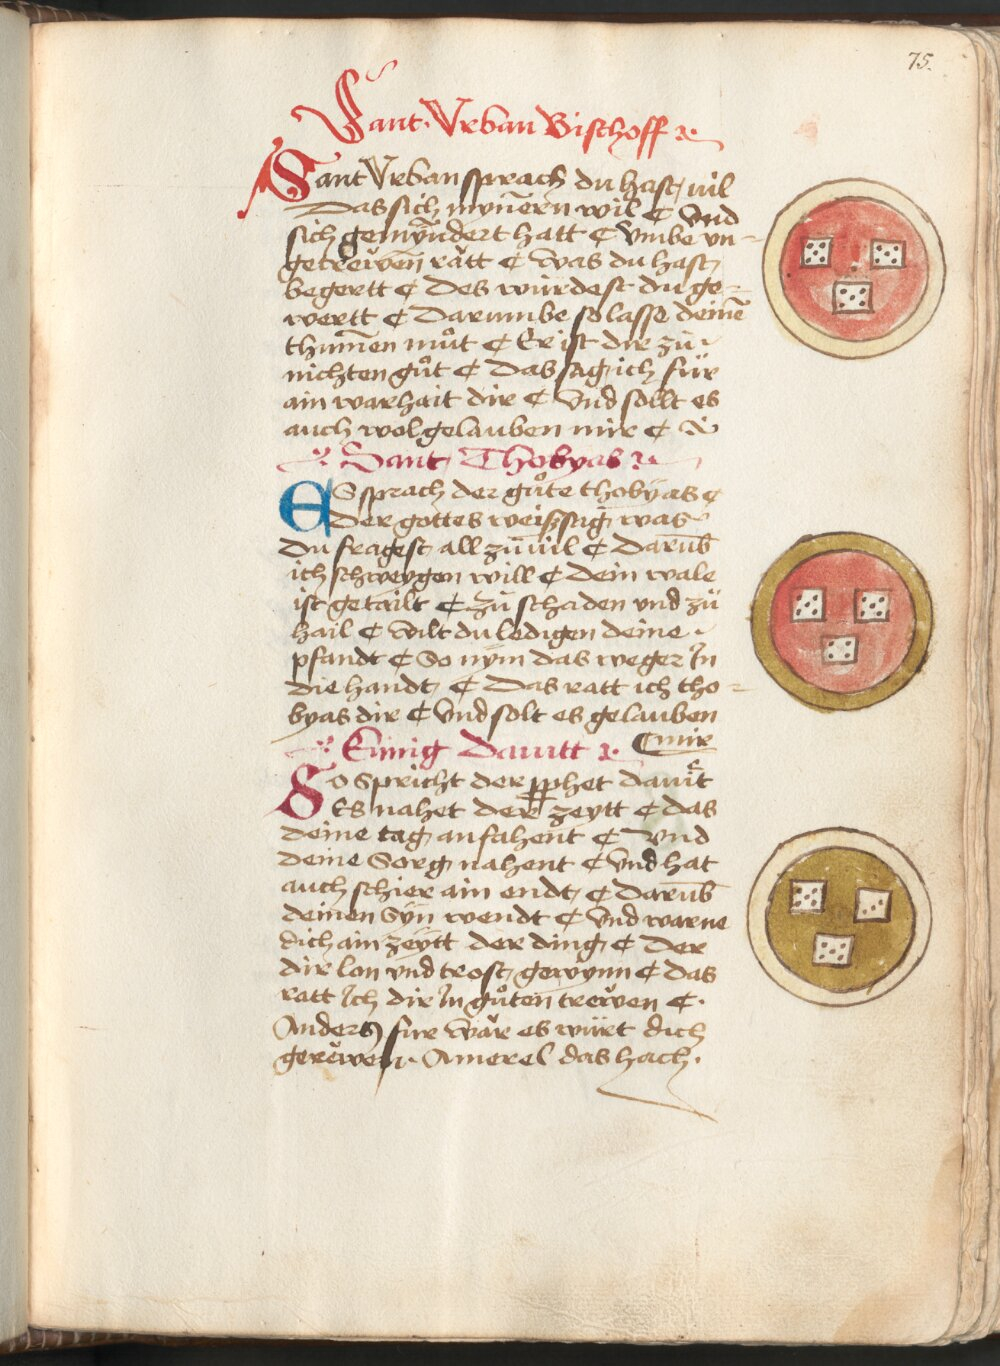 75.
Sant Vrban Bischoff
Sant Vrban sprach du hast vil
Das sich mynnern wil ¢ Vnd
sich gemyndert hatt ¢ Vmbe vn-
getrewen ratt ¢ Was du hast
begertt ¢ Des würdest du ge-
wertt ¢ Darumbe so lasse deinē
thummen můt ¢ Er ist dir zů
nichten gůt ¢ Das sag ich für
ain warhait dir ¢ Vnd sollt es
auch wol gelauben mir ¢
Sant Thobyas
ES sprach der gůte thobÿas ¢
Der gottes weißsag was
Du fragest all zů vil ¢ Darūb
ich schweygen will ¢ Dein wale
ist getailt ¢ Zů schaden vnd zů
hail ¢ Wilt du ledigen deine
pfandt ¢ So nÿm das weger In
die handt ¢ Das ratt ich tho-
byas dir ¢ Vnd solt es gelauben
¢ mir
Künig Dauitt
So Spricht der pphet dauit
Es nahet der zeytt ¢ das
deine tag anfahent ¢ Vnd
deine Sorg nahent ¢ Vnd hat
auch schier ain endt ¢ Darūb
deinen Sÿn wendt ¢ Vnd warne
dich ain zeÿtt der ding ¢ Der
dir lon vnd trost gewynn ¢ das
ratt Ich dir In gůten trewen ¢
Anders für war es würt dich
gerewen Amerel das hach